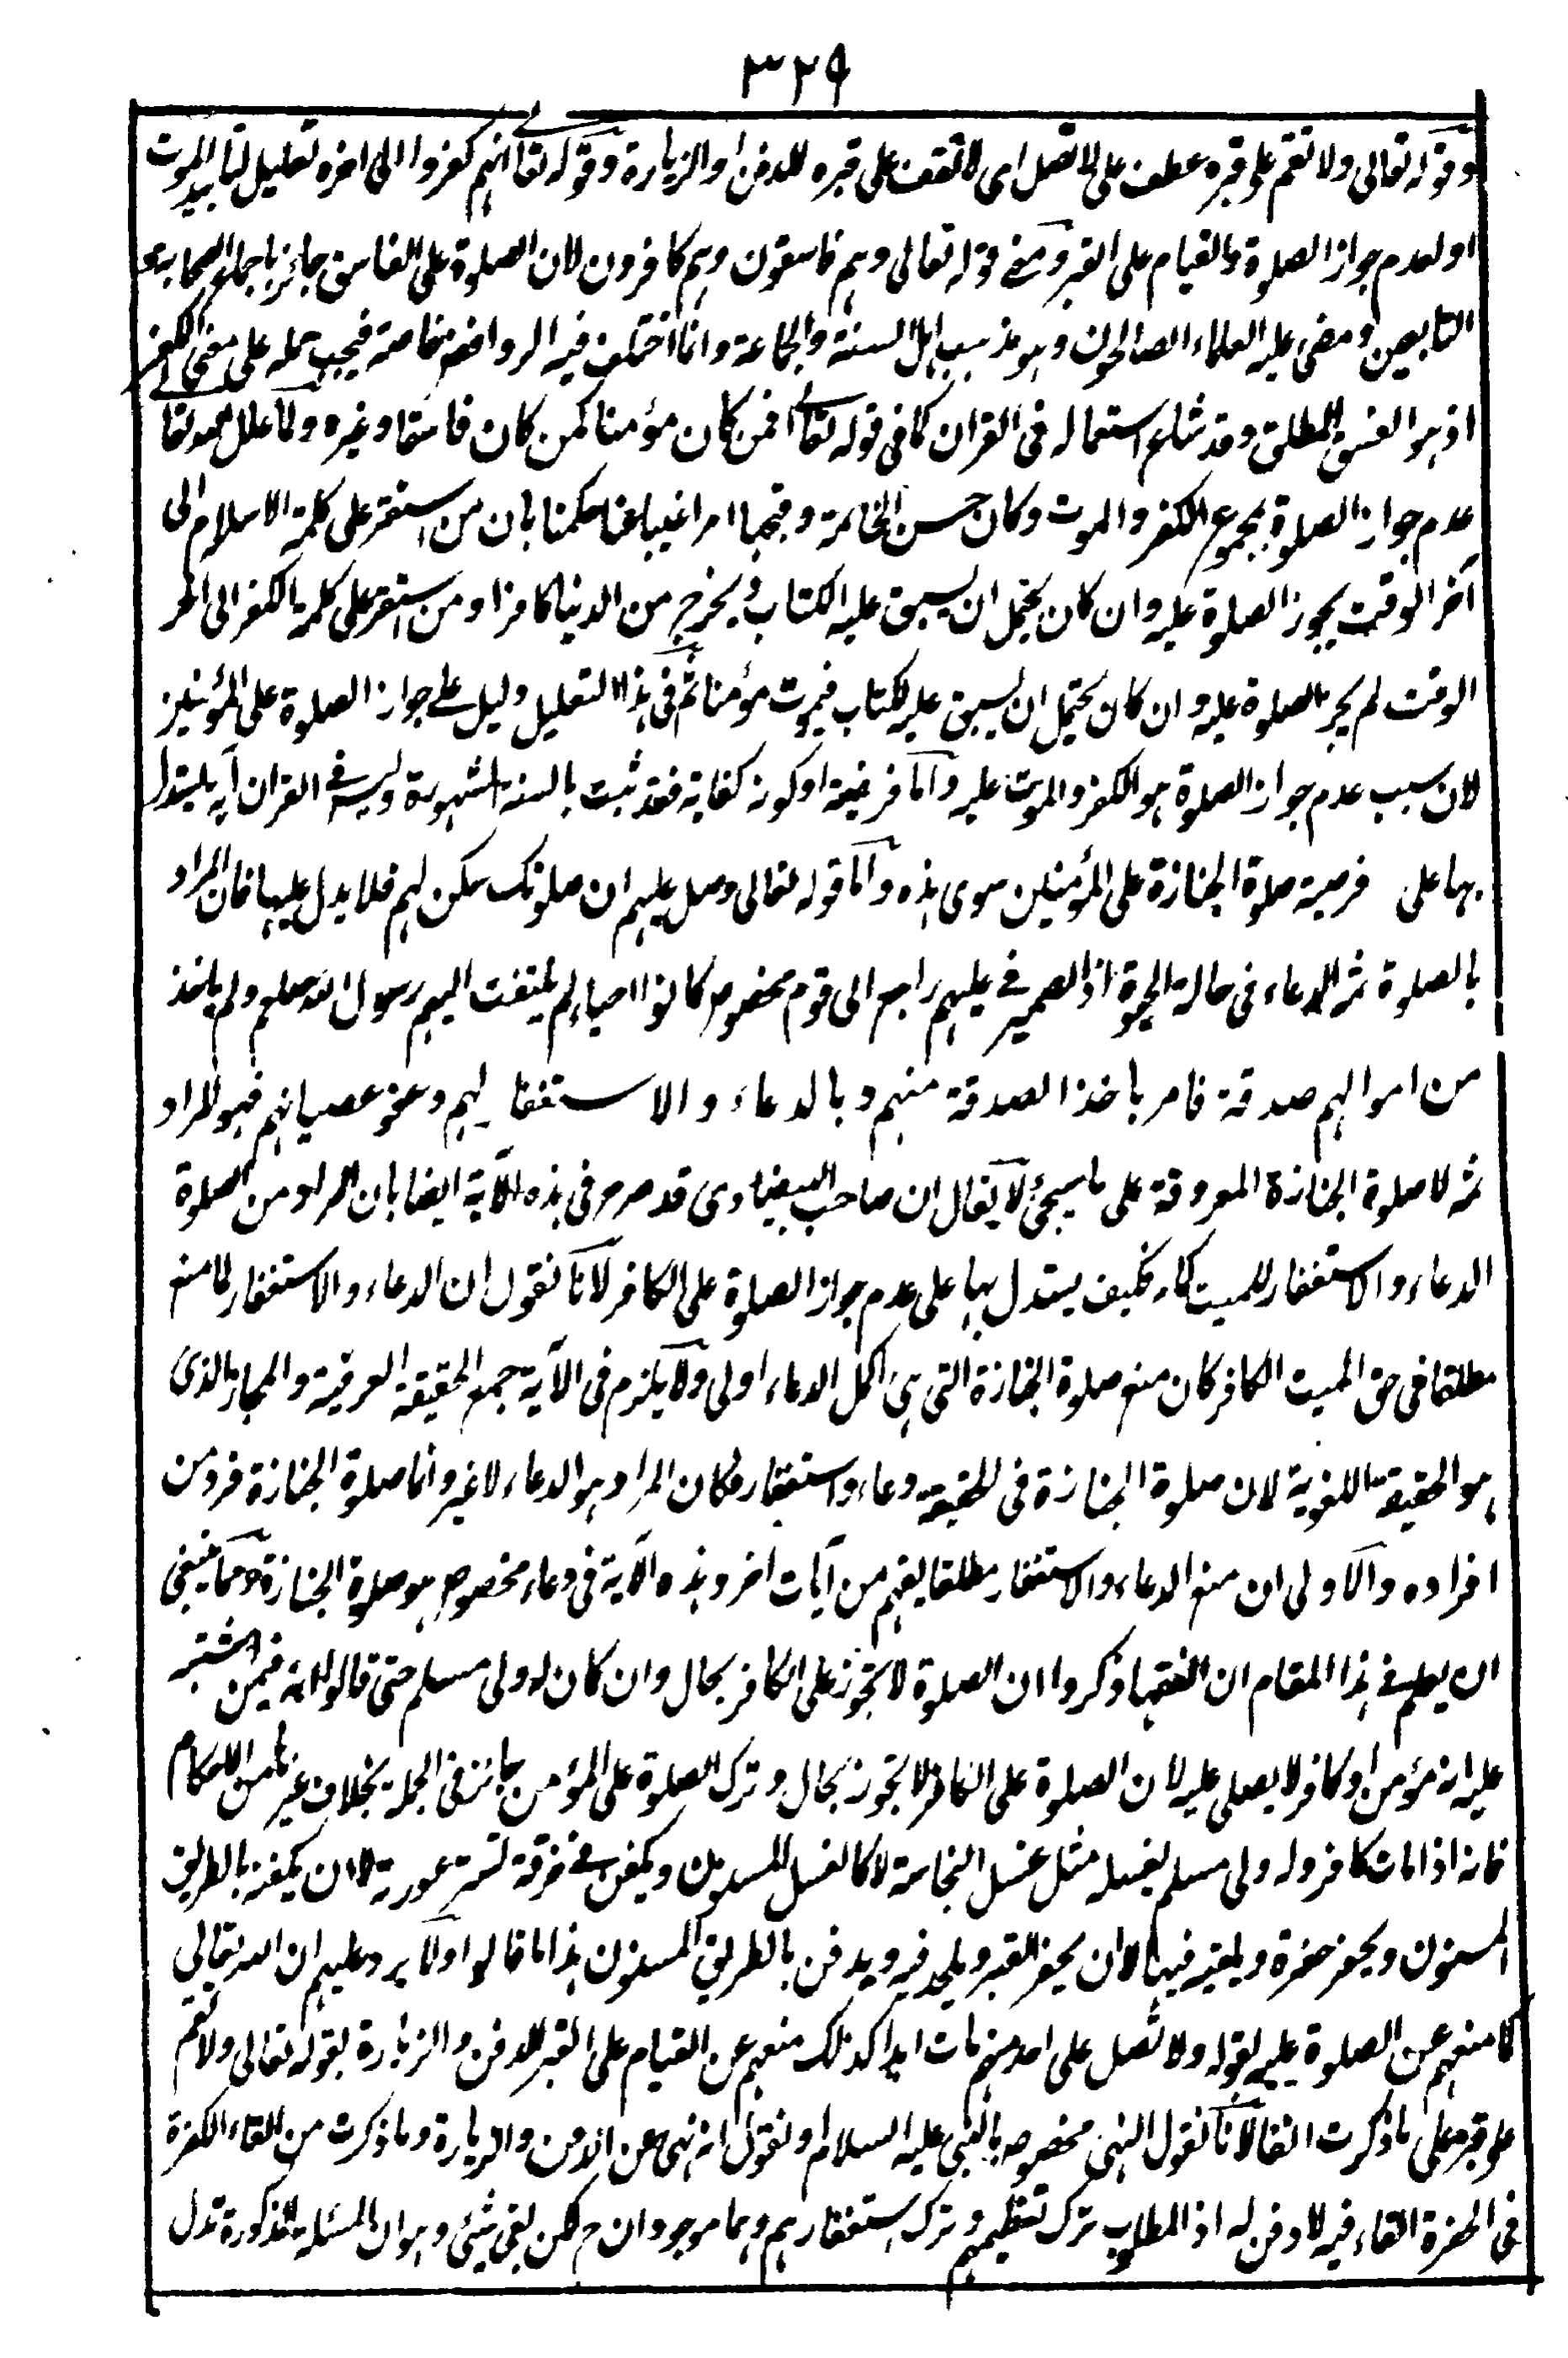 ٣٢٩
وقوله تعالى ولا تقم على قبره عطف على لا تصل اى لا تقف على قبره للدفن او الزيارة وقوله تعالى انهم كفروا الى اخره تعليل لتابيد الموت
او لعدم جواز الصلوة والقيام على القبر ومعنى قوله تعالى وهم فاسقون وهم كافرون لان الصلوة على الفاسق جائز باجماع الصحابة و
التابعين ومضى عليه العلماء الصالحون وهو مذهب اهل السنة والجماعة وانما اختلف فيه الروافض خاصة فيجب حمله على معنى الكفر
اذ هو الفسق المطلق وقد شاع استعماله فى القران كما فى قوله تعالى افمن كان مؤمنا كمن كان فاسقا وغيره ولما علل الله تعالى
عدم جواز الصلوة بمجموع الكفر والموت وكان حسن الخاتمة وقبحها امرا غيبا عنا حكمنا بان من استقر على كلمة الاسلام الى
آخر الوقت يجوز الصلوة عليه وان كان يحتمل ان يسبق عليه الكتاب ويخرج من الدنيا كافرا ومن استقر على كلمة الكفر الى اخر
الوقت لم يجز الصلوة عليه وان كان يحتمل ان يسبق عليه الكتاب فيموت مؤمنا ثم فى هذا التعليل دليل على جواز الصلوة على المؤمنين
لان سبب عدم جواز الصلوة هو الكفر والموت عليه واما فرضية او كونه كفاية فقد ثبت بالسنة المشهورة وليس فى القران آية يستدل
بها على فرضية صلوة الجنازة على المؤمنين سوى هذه واما قوله تعالى وصل عليهم ان صلوتك سكن لهم فلا يدل عليها فان المراد
بالصلوة ثمه الدعاء فى حالة الحيوة اذ الضمير فى عليهم راجع الى قوم مخصوص كانوا احياء لم يلتفت اليهم رسول الله صلعم ولم ياخذ
من اموالهم صدقة فامر باخذ الصدقة منهم وبالدعاء والاستغفار لهم وعفو عصيانهم فهو المراد
ثمه لا صلوة الجنازة المعروفة على ما سيجئ لا يقال ان صاحب البيضاوى قد صرح فى هذه الآية ايضا بان المراد من الصلوة
الدعاء والاستغفار للميت كما مر فكيف يستدل بها على عدم جواز الصلوة على الكافر لانا نقول ان الدعاء والاستغفار لما منع
مطلقا فى حق الميت الكافر كان منع صلوة الجنازة التى هى اكمل الدعاء اولى ولا يلزم فى الآية جمع الحقيقة العرفية والمجاز الذى
هو الحقيقة اللغوية لان صلوة الجنازة فى الحقيقة دعاء واستغفار فكان المراد هو الدعاء لا غير وانما صلوة الجنازة فرد من
افراده والاولى ان منع الدعاء والاستغفار مطلقا يفهم من آيات اخر وهذه الآية فى دعاء مخصوص هو صلوة الجنازة ومما ينبغى
ان يعلم فى هذا المقام ان الفقهاء ذكروا ان الصلوة لا تجوز على الكافر بحال وان كان له ولى مسلم حتى قالوا انه فيمن اشتبه
عليه انه مؤمن او كافر لا يصلى عليه لان الصلوة على الكافر لا يجوز بحال وترك الصلوة على المؤمن جائز فى الجملة بخلاف غيرها من الاحكام
فانه اذا مات كافر وله ولى مسلم يغسله مثل غسل النجاسة لا كالغسل للمسلمين ويكفن فى خرقة لستر عورته لا ان يكفنه بالطريق
المسنون ويحفر حفرة ويلقيه فيها لا ان يحفر القبر ويلحد فيه ويدفن بالطريق المسنون هذا ما قالوا ولا يرد عليهم ان الله تعالى
كما منعهم عن الصلوة عليه بقوله ولا تصل على احد منهم مات ابدا كذلك منعهم عن القيام على القبر للدفن والزيارة بقوله تعالى ولا تقم
على قبره على ما ذكرت انفا لانا نقول النهى مخصوص بالنبى عليه السلام او نقول انه نهى عن الدفن والزيارة وما ذكرت من القاء الكفرة
فى الحفرة القاء فيه لا دفن له اذ المطلوب ترك تعظيمهم وترك استغفارهم وهما موجودان ح لكن بقى شئ وهو ان المسئلة المذكورة تدل